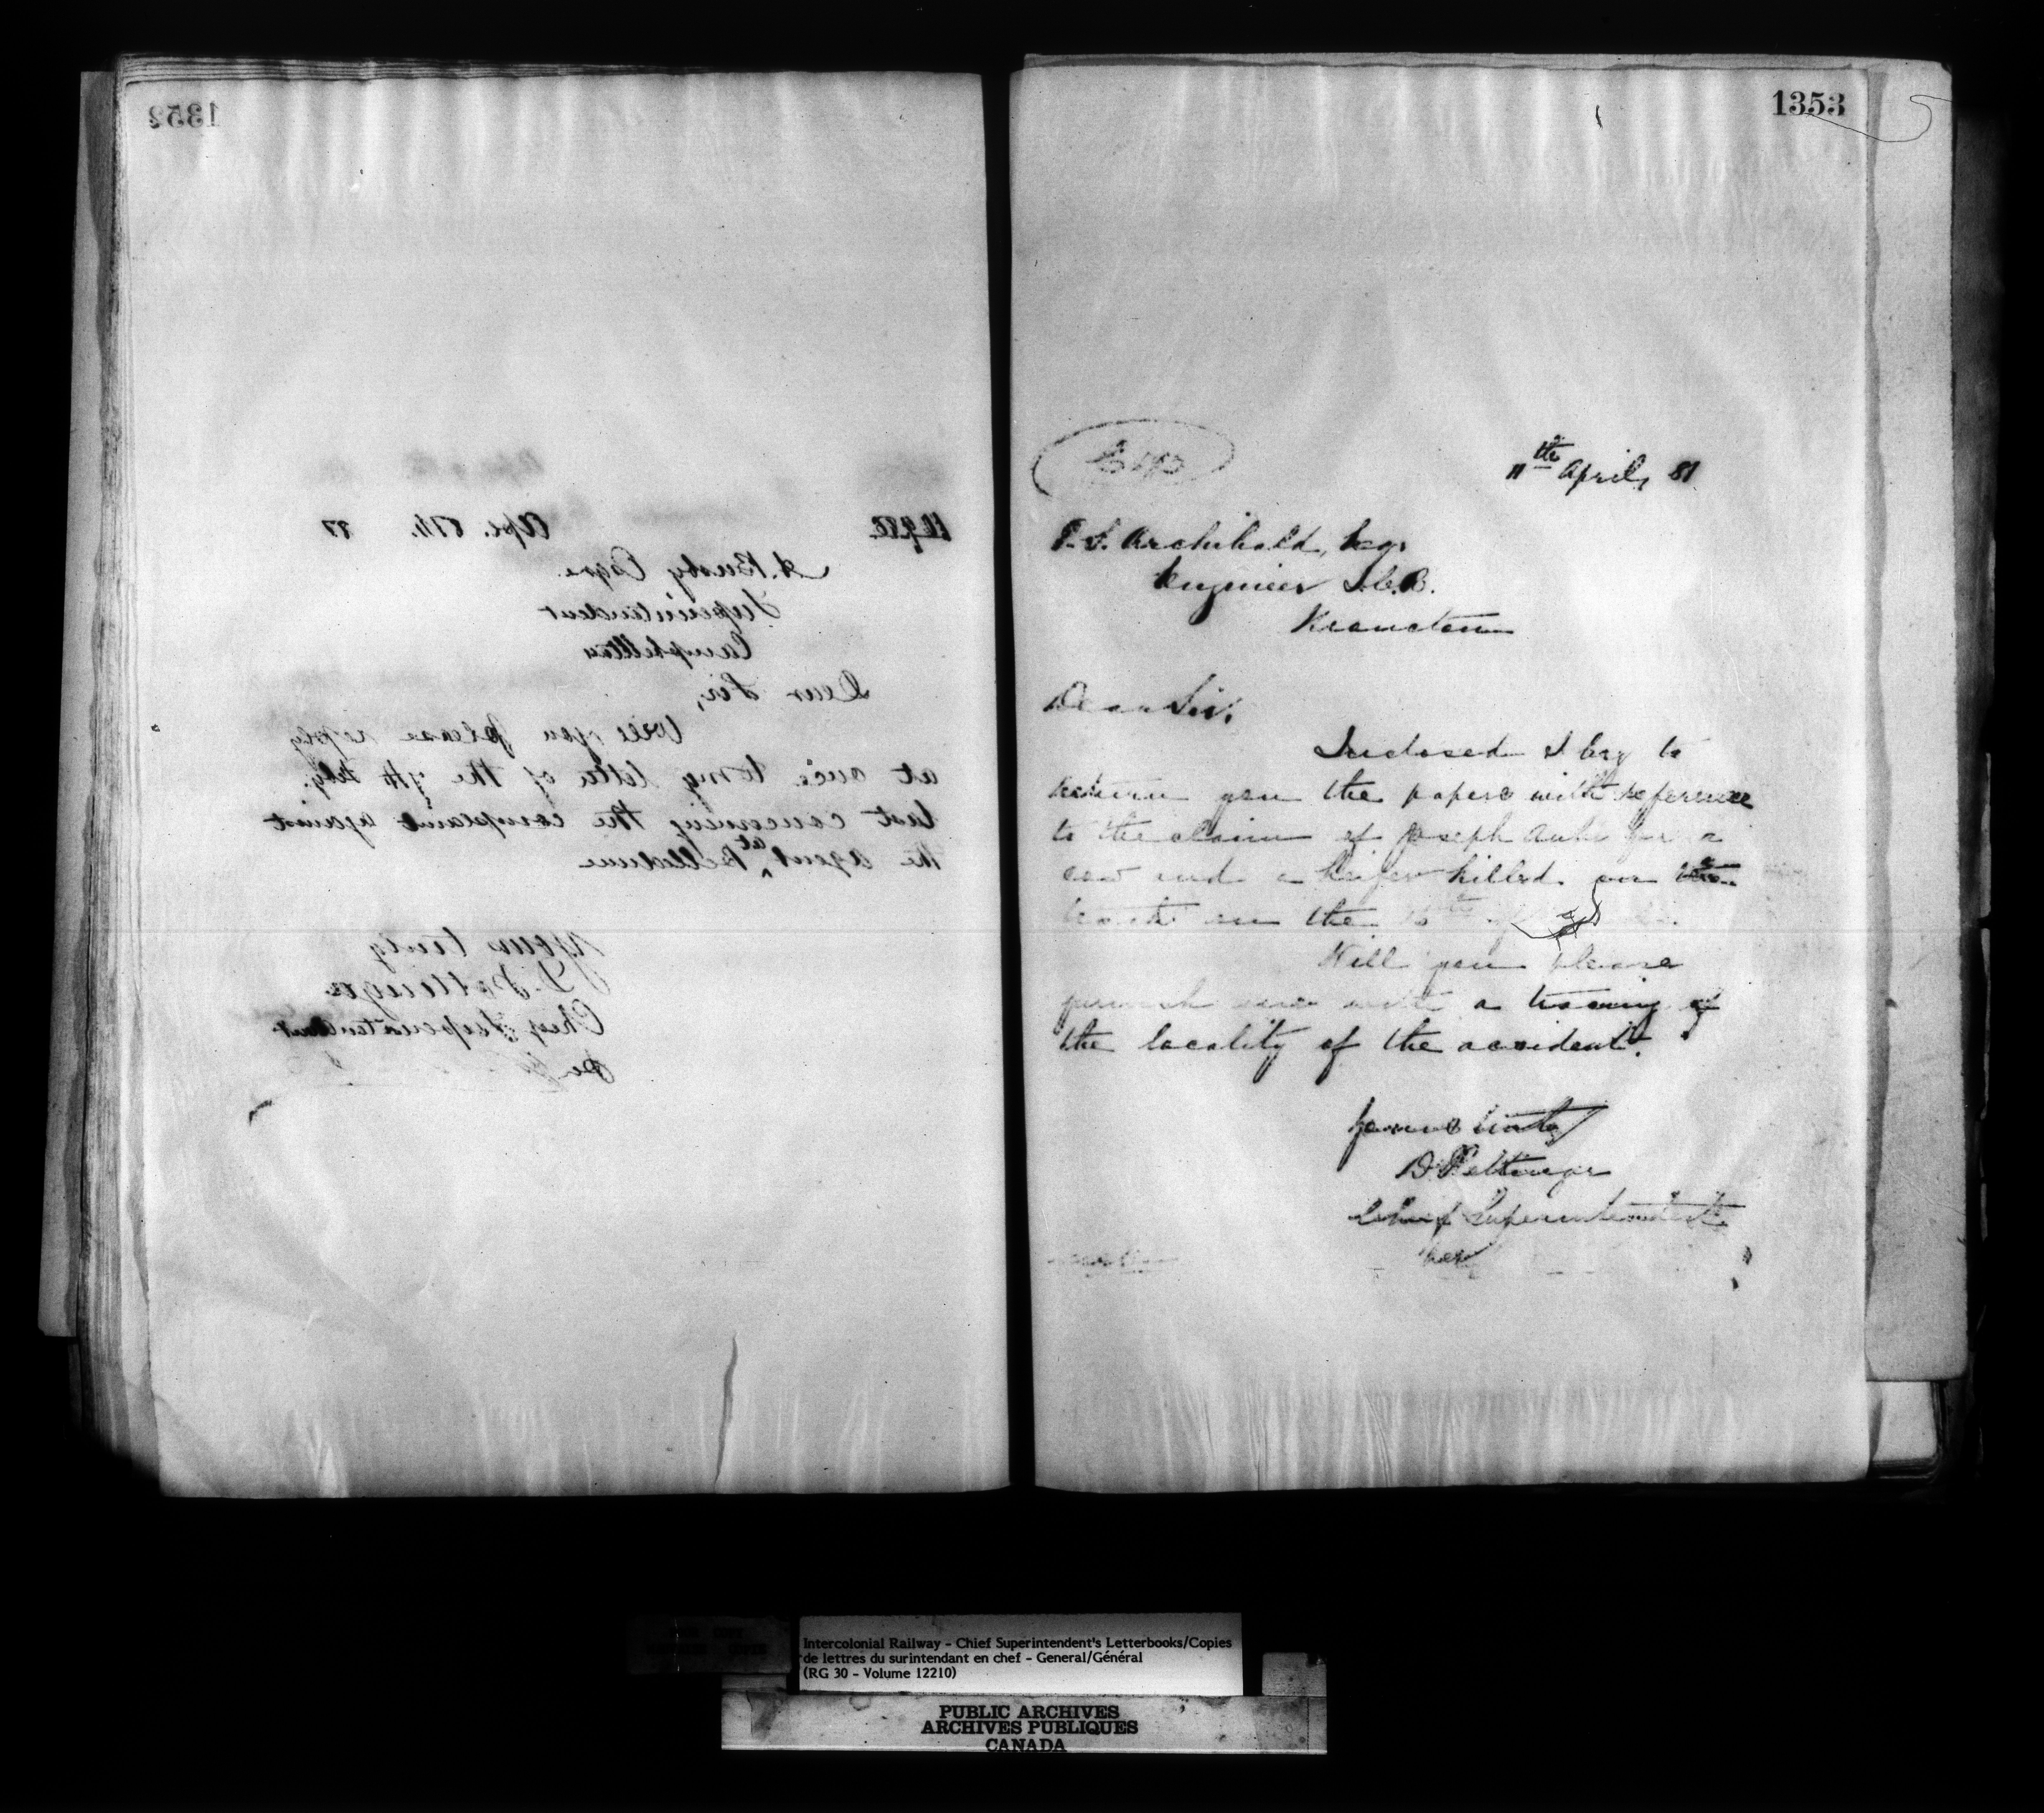 1352
Apl. 8th. 87
A. Busby Esqre.
Superintendent
Campbellton
Dear Sir,
Will you please reply
at once to my letter of the 9th Feby.
last concerning the complaint against
the agent at Belledune
Yours truly
D. Pottinger
Chief Superintendent
1353
11th April, 87
P. S. Archibald, Esq.
Engineer I.C.R.
Moncton
Dear Sir,
Inclosed I beg to
return you the papers with reference
to the claim of Joseph Aube for a
cow and a heifer killed on the
track on the
Will you please
furnish me with a tracing of
the locality of the accident.
Yours truly
D. Pottinger
Chief Superintendent
per
Intercolonial Railway - Chief Superintendent's Letterbooks/Copies
de lettres du surintendant en chef - General/Général
(RG 30 - Volume 12210)
PUBLIC ARCHIVES
ARCHIVES PUBLIQUES
CANADA